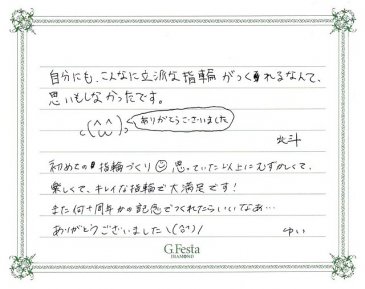 自分にも、こんなに立派な指輪がつくれるなんて、
思いもしなかったです。
ありがとうございました
北斗
初めての指輪づくり 思っていた以上にむずかしくて、
楽しくて、キレイな指輪で大満足です！
また何十周年かの記念でつくれたらいいなあ…
ありがとうございました\(^▽^)/
ゆい
G.Festa
DIAMOND